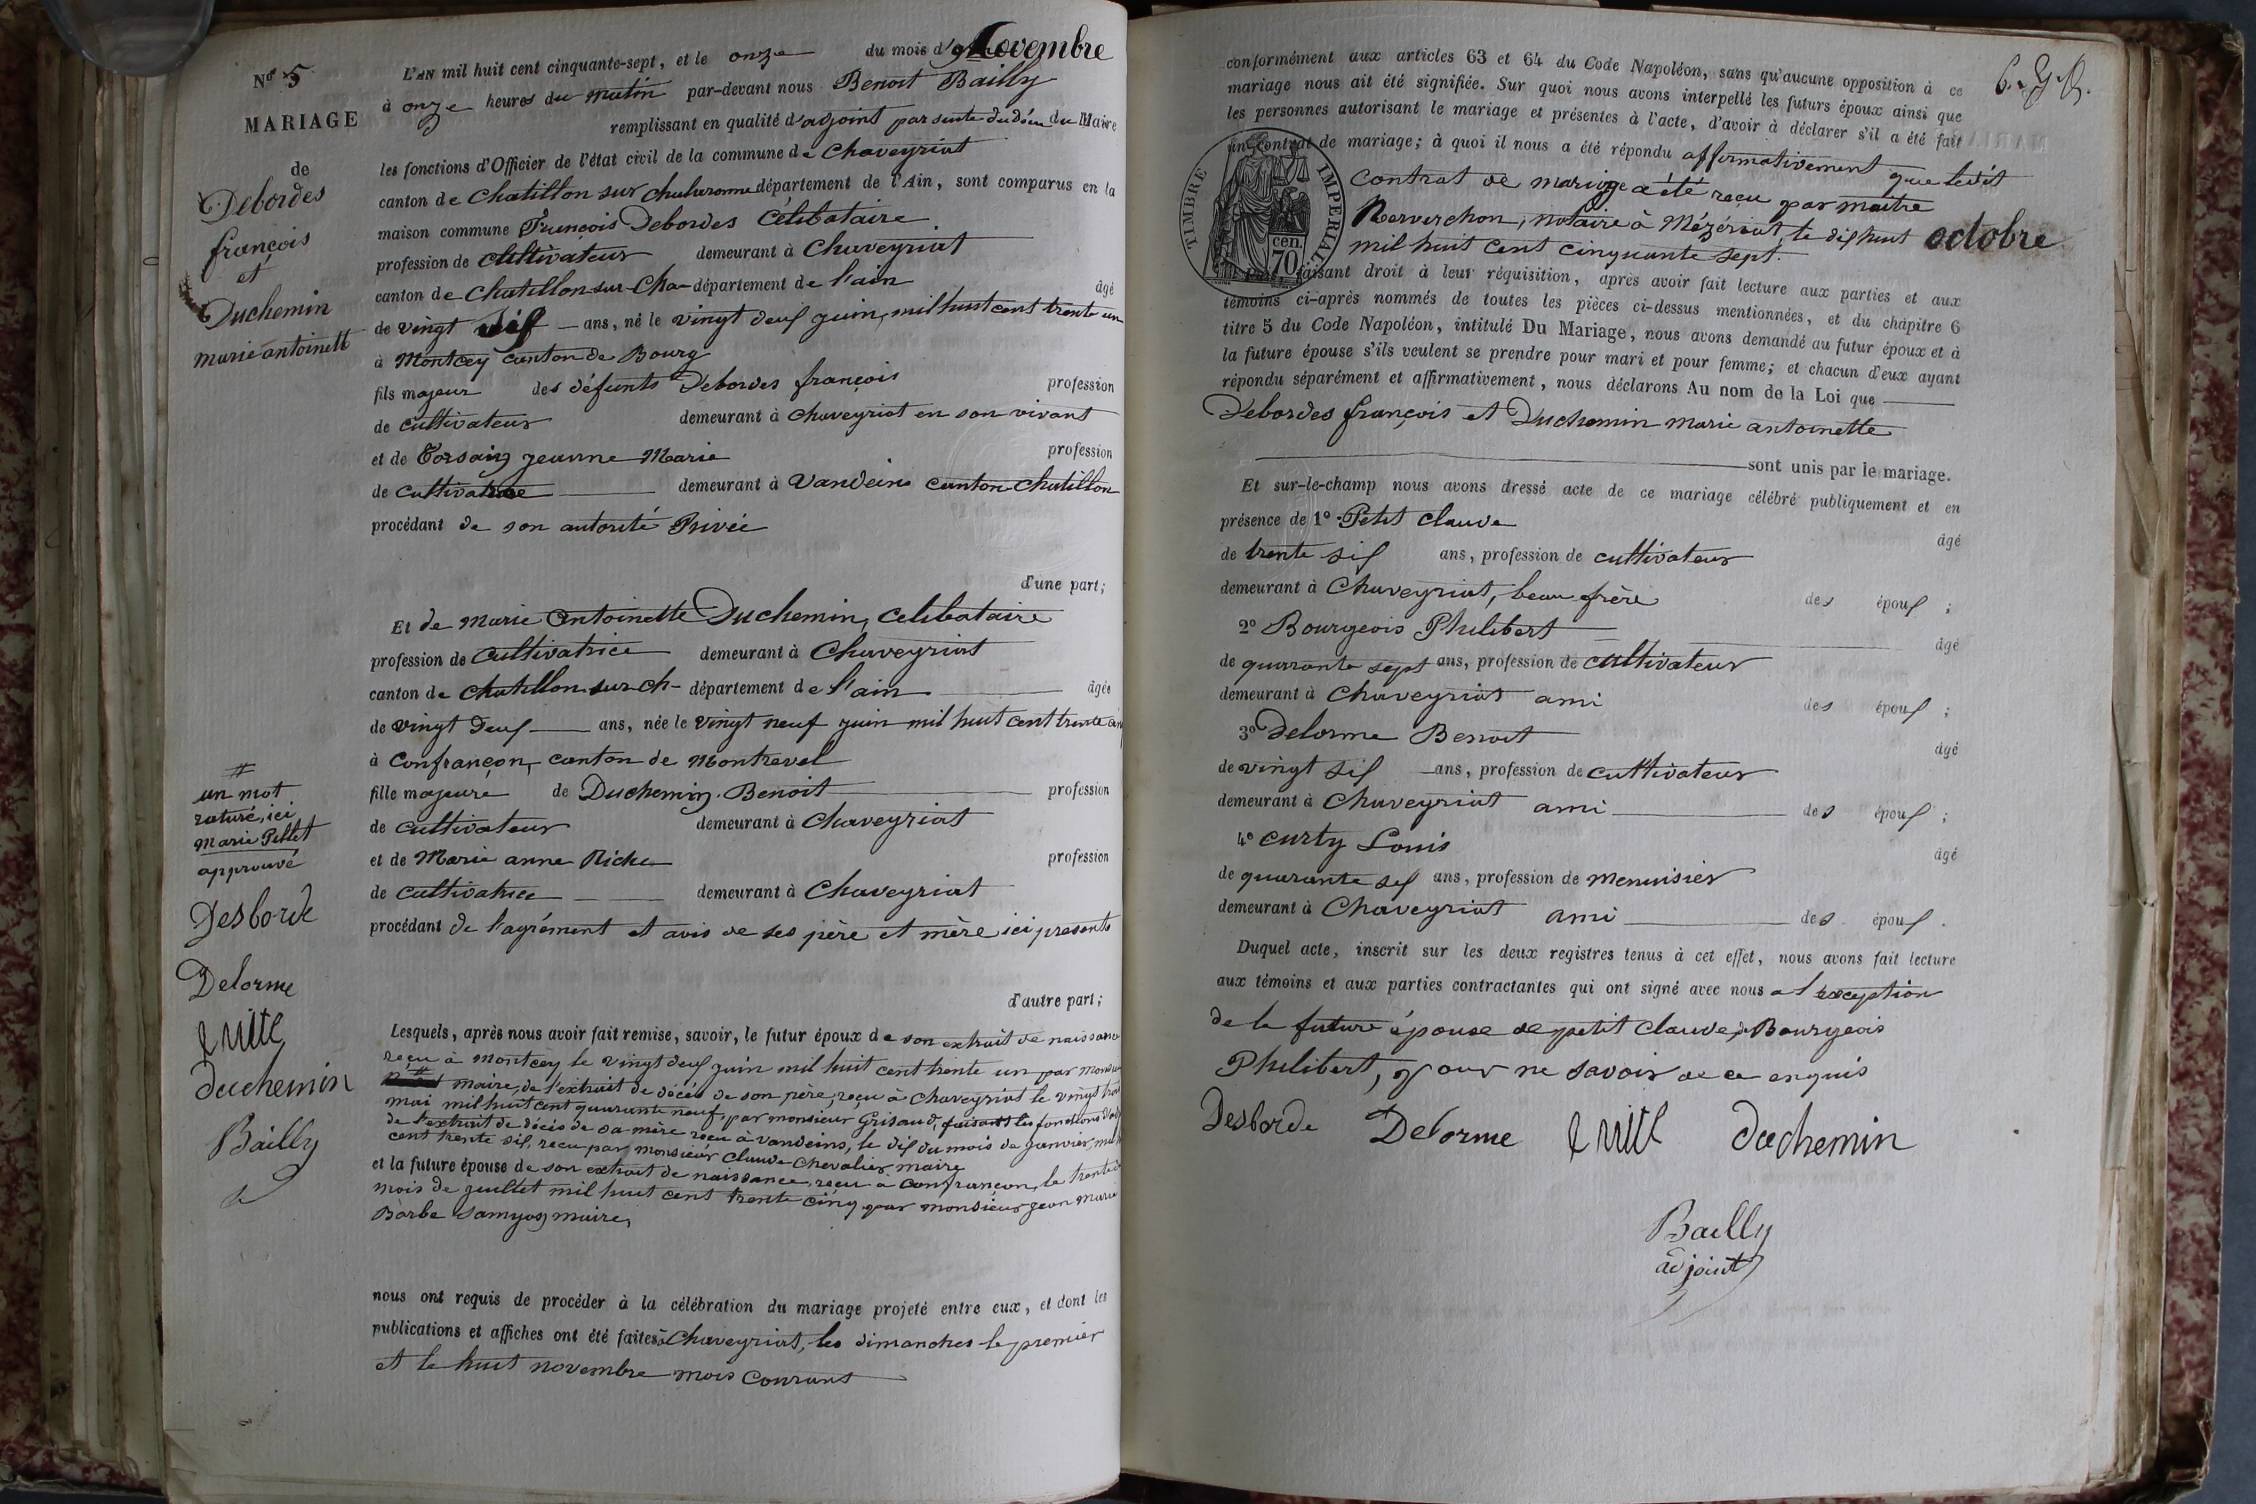 Nº 5
MARIAGE
de
Debordes
françois
et
Duchemin
marie antoinett
#
un mot
raturé, ici
Marie Pillet
approuvé
Desborde
Delorme
duchemin
Bailly
L'AN mil huit cent cinquante-sept, et le onze du mois d 9 Novembre
à onze heures du matin par-devant nous Benoit Bailly
remplissant en qualité d'adjoint par suite du du Maire
les fonctions d'Officier de l'état civil de la commune de Chaveyriat
canton de Chatillon sur chalaronne département de l'Ain, sont comparus en la
maison commune François Debordes Célibataire
profession de cultivateur demeurant à Chaveyriat
canton de Chatillon-sur-Cha- département de l'ain âgé
de vingt six ans, né le vingt deux juin, mil huit cent trente un
à Montcey canton de Bourg
fils majeur des défunts Debordes françois profession
de cultivateur demeurant à Chaveyriat en son vivant
et de jeanne Marie profession
de cultivatrice demeurant à Vandeins canton Chatillon
procédant de son autorité Privée
d'une part;
Et de Marie Antoinette Duchemin, celibataire
profession de Cultivatrice demeurant à Chaveyriat
canton de Chatillon sur ch- département de l'ain âgée
de vingt deux ans, née le vingt neuf juin mil huit cent trente cinq
à Confrançon, canton de Montrevel
fille majeure de Duchemin Benoit profession
de cultivateur demeurant à Chaveyriat
et de Marie anne Riche profession
de cultivatrice demeurant à Chaveyriat
procédant de l'agrément et avis de ses père et mère ici présents
d'autre part;
Lesquels, après nous avoir fait remise, savoir, le futur époux de son extrait de naissance
reçu à Montcey le vingt deux juin mil huit cent trente un par monsieur
# maire, de l'extrait de décès de son père, reçu à Chaveyriat le vingt trois
mai mil huit cent quarante neuf, par monsieur Grisaud, faisant les fonctions
de l'extrait de décès de sa mère reçu à Vandeins, le dix du mois de janvier, mil
cent trente six, reçu par monsieur Claude Chevalier, maire
et la future épouse de son extrait de naissance, reçu à Confrançon, le trente
mois de juillet mil huit cent trente cinq par monsieur jean marie
Barbe Samyon maire,
nous ont requis de procéder à la célébration du mariage projeté entre eux, et dont les
publications et affiches ont été faites à Chaveyriat, les dimanches le premier
et le huit novembre mois courant
conformément aux articles 63 et 64 du Code Napoléon, sans qu'aucune opposition à ce
mariage nous ait été signifiée. Sur quoi nous avons interpellé les futurs époux ainsi que
les personnes autorisant le mariage et présentes à l'acte, d'avoir à déclarer s'il a été fait
un contrat de mariage; à quoi il nous a été répondu affirmativement que ledit
TIMBRE IMPERIAL
70 cen.
contrat de mariage a été reçu par maître
notaire à Mézériat, le dix huit octobre
mil huit cent cinquante sept.
faisant droit à leur réquisition, après avoir fait lecture aux parties et aux
témoins ci-après nommés de toutes les pièces ci-dessus mentionnées, et du chapitre 6
titre 5 du Code Napoléon, intitulé Du Mariage, nous avons demandé au futur époux et à
la future épouse s'ils veulent se prendre pour mari et pour femme; et chacun d'eux ayant
répondu séparément et affirmativement, nous déclarons Au nom de la Loi que
Debordes françois et Duchemin Marie antoinette
sont unis par le mariage.
Et sur-le-champ nous avons dressé acte de ce mariage célébré publiquement et en
présence de 1º Petit Claude âgé
de trente six ans, profession de cultivateur
demeurant à Chaveyriat, beau frère des époux ;
2º Bourgeois Philibert âgé
de quarante sept ans, profession de cultivateur
demeurant à Chaveyriat ami des époux ;
3º Delorme Benoit âgé
de vingt six ans, profession de cultivateur
demeurant à Chaveyriat ami des époux ;
4º Curty Louis âgé
de quarante six ans, profession de menuisier
demeurant à Chaveyriat ami des époux .
Duquel acte, inscrit sur les deux registres tenus à cet effet, nous avons fait lecture
aux témoins et aux parties contractantes qui ont signé avec nous a l'exception
de la future épouse de petit Claude, de Bourgeois
Philibert, pour ne savoir de ce enquis
Desborde Delorme duchemin
Bailly
adjoint